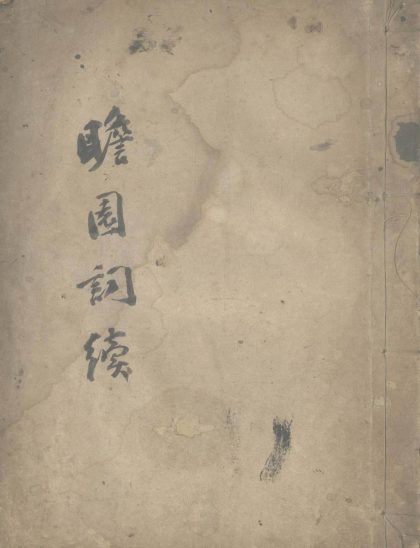 瞻園詞續